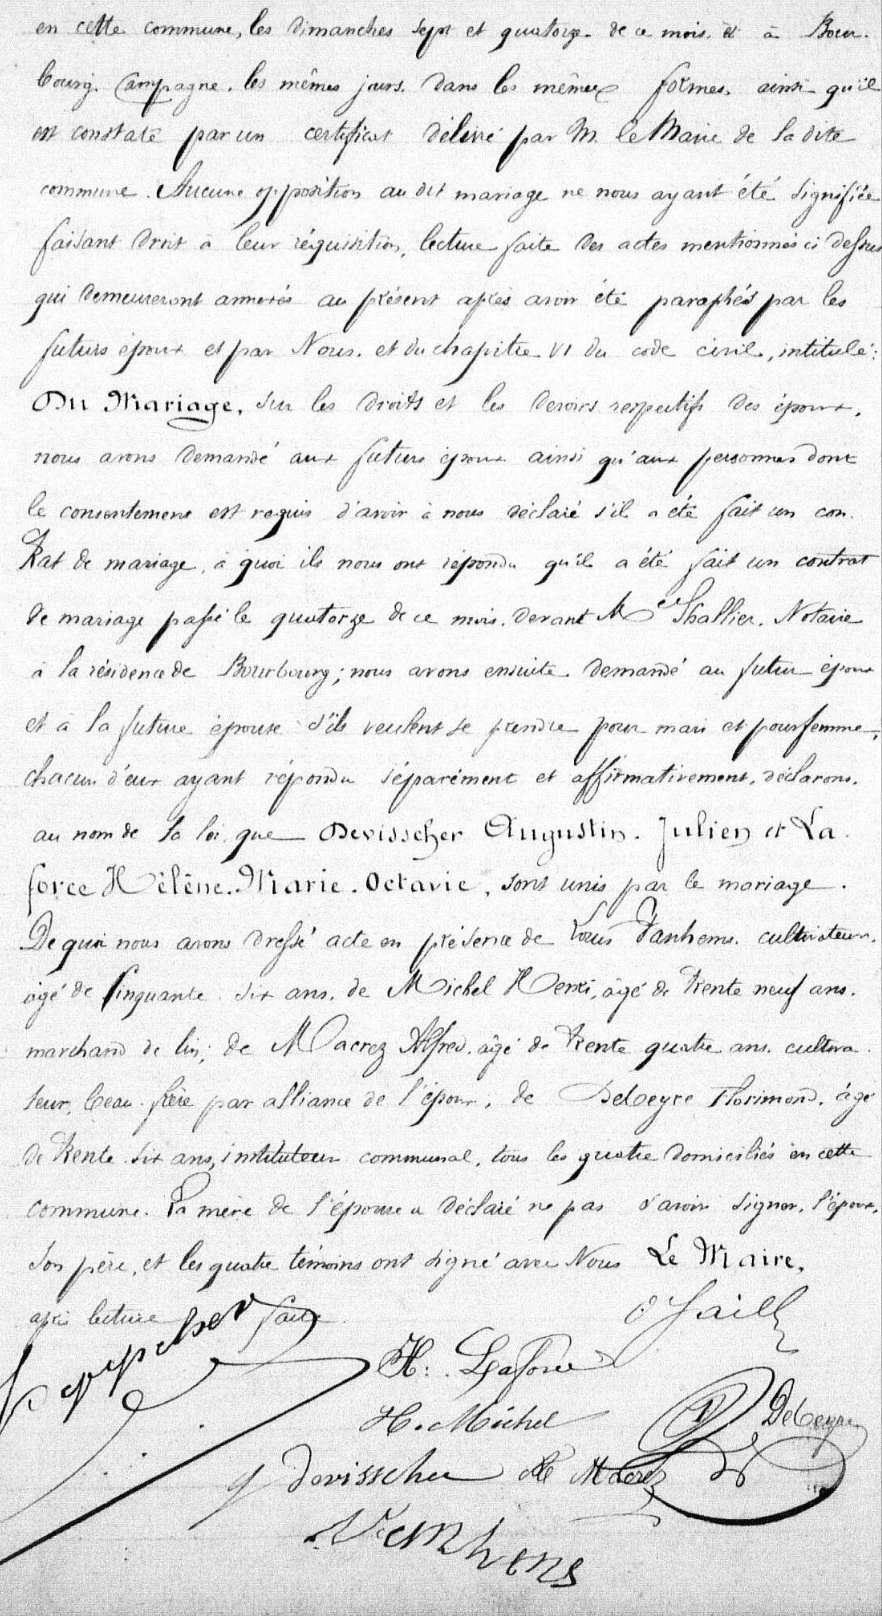 en cette commune, les dimanches sept et quatorze de ce mois et à Bour-
bourg Campagne, les mêmes jours, dans les mêmes formes, ainsi qu'il
est constaté par un certificat délivré par M. le Maire de la dite
commune. Aucune opposition au dit mariage ne nous ayant été signifiée
faisant droit à leur réquisition, lecture faite des actes mentionnés ci dessus
qui demeureront annexés au présent après avoir été paraphés par les
futurs époux et par Nous, et du chapitre VI du code civil, intitulé:
Du Mariage, sur les droits et les devoirs respectifs des époux,
nous avons demandé aux futurs époux ainsi qu'aux personnes dont
le consentement est requis d'avoir à nous déclaré s'il a été fait un con-
trat de mariage, à quoi ils nous ont répondu qu'il a été fait un contrat
de mariage passé le quatorze de ce mois, devant Me Thallier, Notaire
à la résidence de Bourbourg; nous avons ensuite demandé au futur époux
et à la future épouse s'ils veulent se prendre pour mari et pour femme,
chacun d'eux ayant répondu séparément et affirmativement, déclarons,
au nom de la loi que Devisscher Augustin. Julien et La-
force Hélène. Marie. Octavie, sont unis par le mariage.
De quoi nous avons dressé acte en présence de Louis Vanhems, cultivateur,
âgé de Cinquante six ans, de Michel Henri, âgé de trente neuf ans,
marchand de lin; de Macrez Alfred, âgé de trente quatre ans, cultiva-
teur, beau-frère par alliance de l'époux, de Debeyre Florimond, âgé
de trente six ans, instituteur communal, tous les quatre domiciliés en cette
commune. La mère de l'épouse a déclaré ne pas savoir signer, l'époux,
son père, et les quatre témoins ont signé avec Nous Le Maire,
après lecture faite.
H. Laforce
H. Michel
Debeyre
Devisscher
Macrez
Vanhems